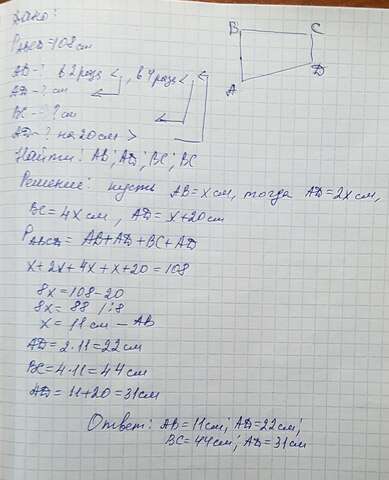 Дано:
P ABCD = 108 см
AB-? в 2 раза <, в 4 раза <
AD-? см
BC-? см
AD-? на 20 см >
Найти: AB; AD; BC; BC
Решение: пусть AB = x см, тогда AD = 2x см,
BC = 4x см, AD = x+20 см
P ABCD = AB+AD+BC+AD
x+2x+4x+x+20=108
8x=108-20
8x= 88 /:8
x = 11 см - AB
AD = 2·11=22см
BC=4·11=44см
AD = 11+20=31см
Ответ: AB=11см; AD=22см;
BC=44см; AD=31см
B C
A D